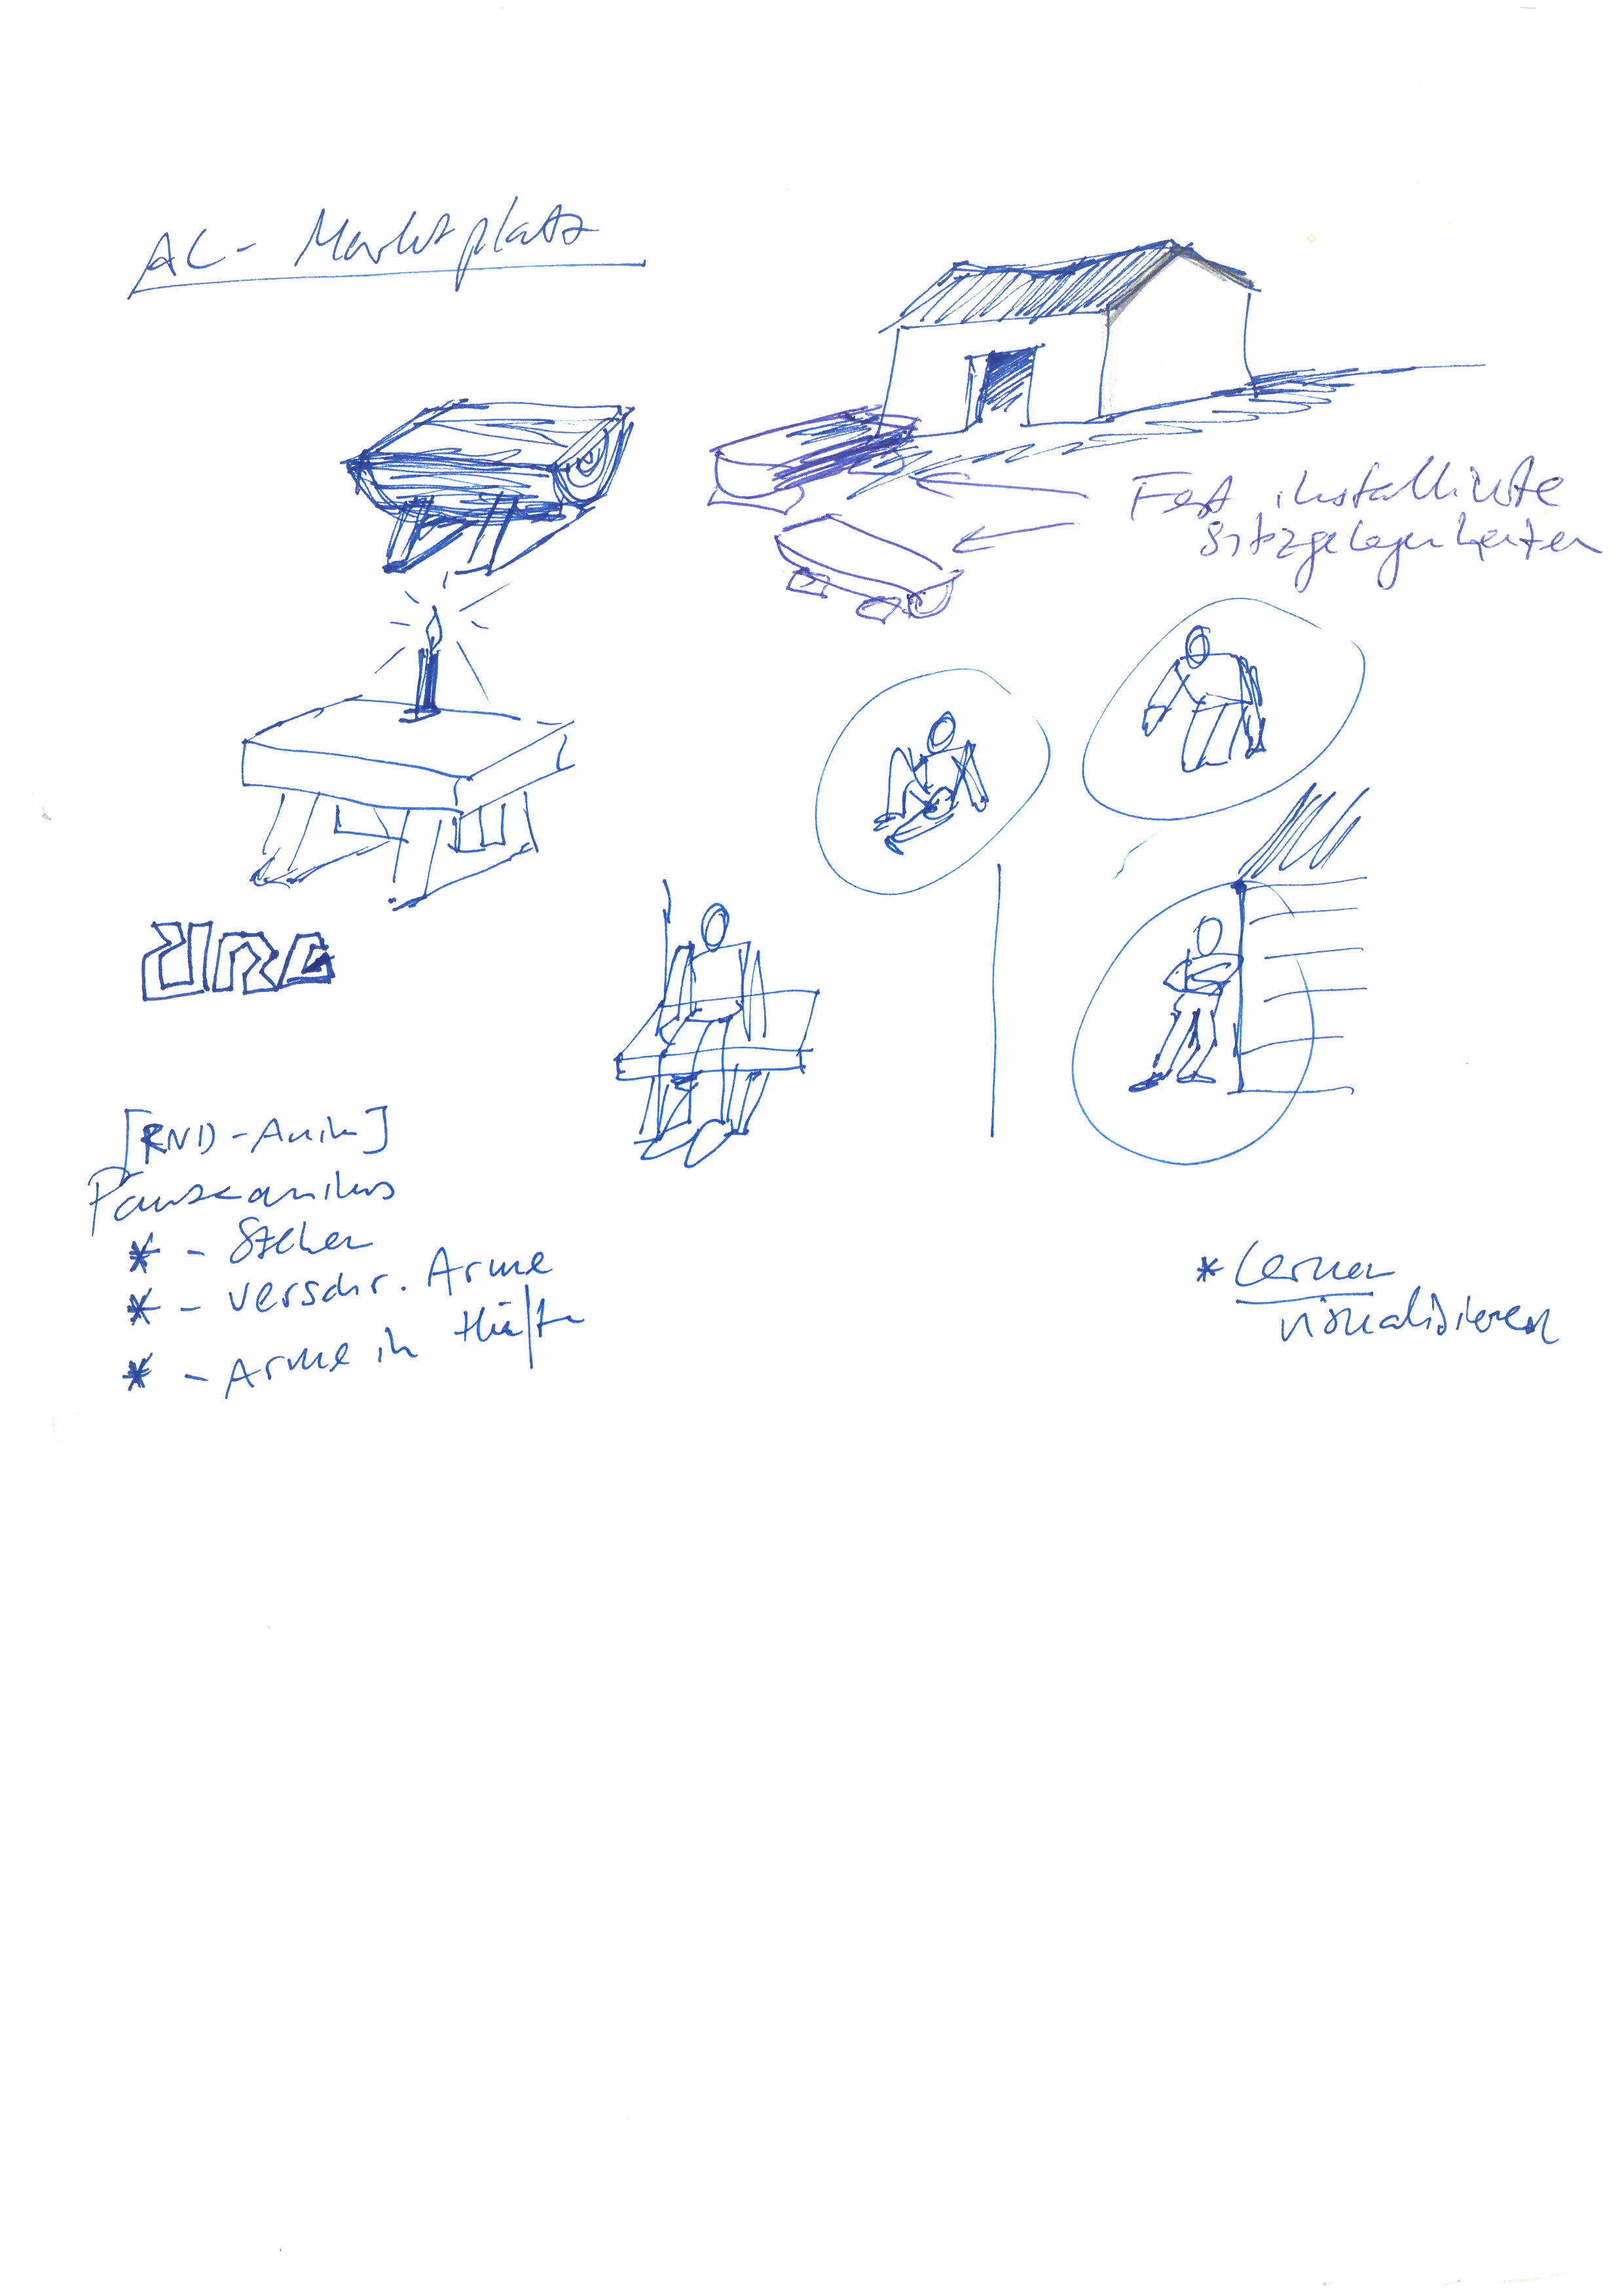 AC- Marktplatz
Fest installierte
Sitzgelegenheiten
[RND-Anim]
Pauseanims
* - Stehen
* - verschr. Arme
* - Arme in Hüfte
* Lernen
visualisieren